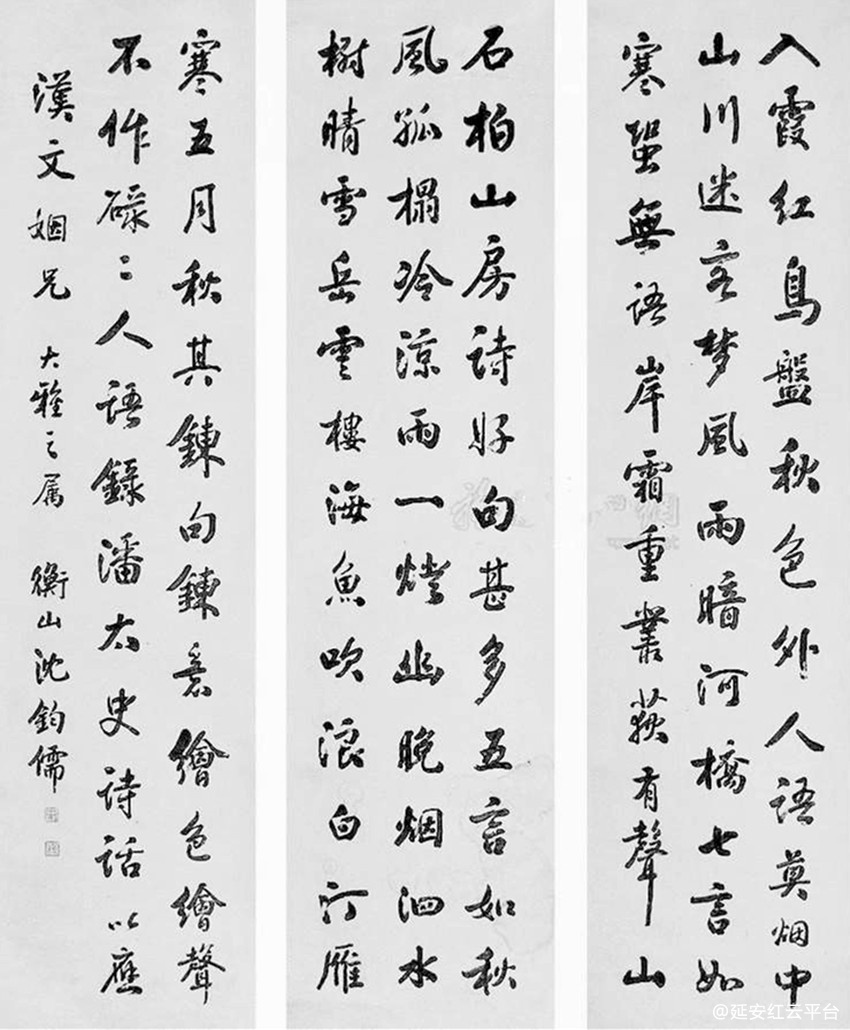 石柏山房詩好句甚多五言如秋
風孤榻冷涼雨一燈幽晚烟泗水
樹晴雪岳雲樓海魚吹浪白汀雁
入霞紅鳥盤秋色外人語莫烟中
山川迷客梦風雨暗河橋七言如
寒蛩無語岸霜重叢荻有聲山
寒五月秋其鍊句鍊意繪色繪聲
不作碌〻人語錄潘太史詩話以應
漢文姻兄 大雅之属 衡山沈鈞儒
@延安红云平台